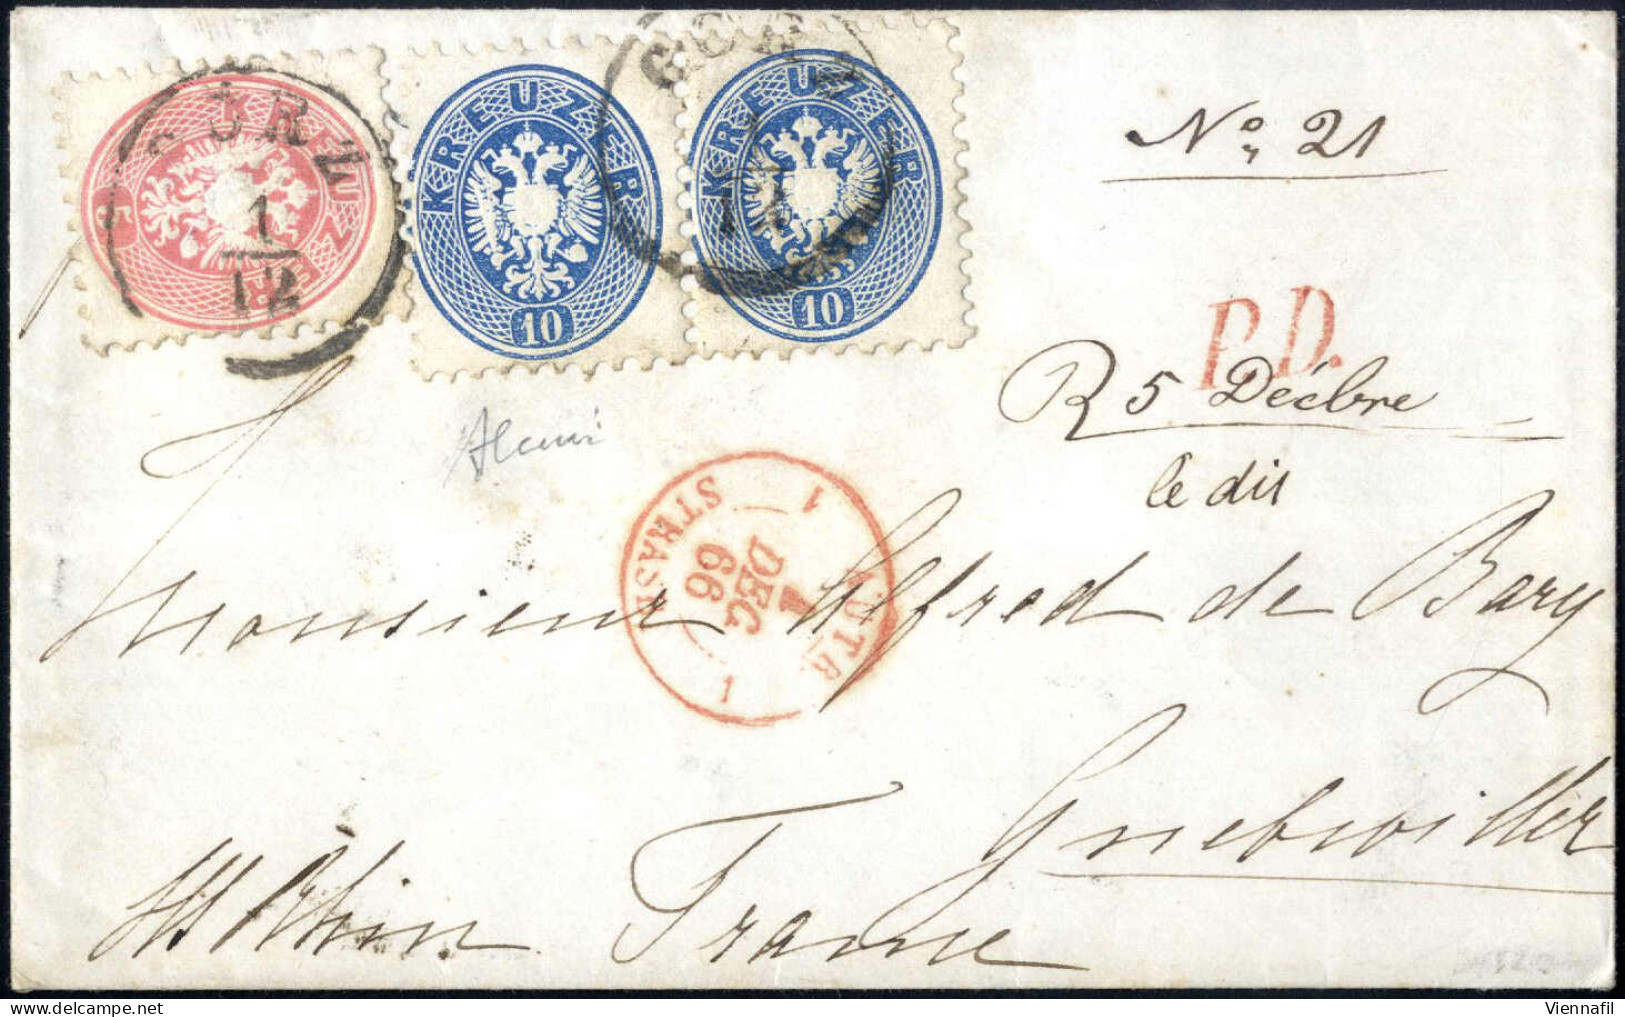 GÖRZ
1
12
5
KREUZER
KREUZER
10
KREUZER
10
GÖRZ
No. 21
P.D.
R 5 Décbre
le dit
AUTR. 1 STRASB. 1
4
DEC
66
Monsieur Alfred de Bary
Guebwiller
Ht Rhin France
Viennafil